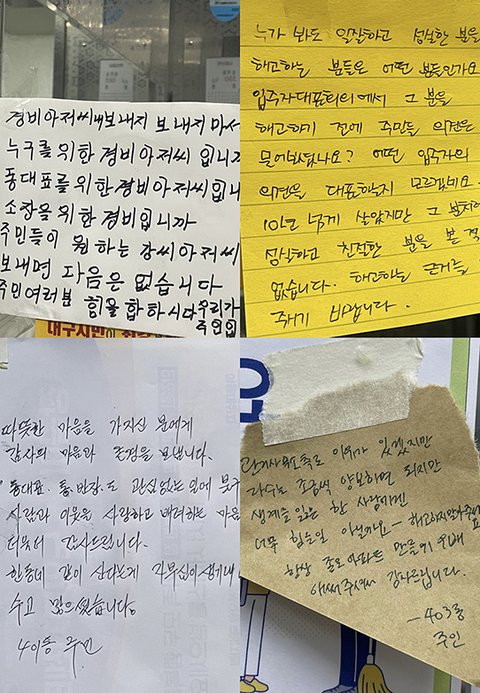 경비아저씨내보내지 보내지 마서
누구를 위한 경비아저씨 입니까
동대표를 위한 경비아저씨 입니
소장을 위한 경비입니까
주민들이 원하는 강씨아저씨
보내면 다음은 없습니다
주민여러분 힘을 합하시다 우리가
주인입
대구시민이
누가 봐도 일잘하고 성실한 분을
해고하는 분들은 어떤 분들인가요
입주자대표회의에서 그 분을
해고하기 전에 주민들 의견은
물어보셨나요? 어떤 입주자의
의견을 대표하는지 모르겠네요.
10년 넘게 살았지만 그 분처럼
성실하고 친절한 분을 본 적
없습니다. 해고하는 근거를
주시기 바랍니다.
따뜻한 마음을 가지신 분에게
감사의 마음과 존경을 보냅니다.
동대표, 통·반장도 관심없는 일에
사람과 이웃을 사랑하고 배려하는 마음
더욱더 감사드립니다.
한동네 같이 산다는게 자부심이 생기네
수고 많으셨습니다.
4이동 주민
관리사무소측도 이유가 있겠지만
다들 조금씩 양보하면 되지만
생계를 잃은 한 사람에겐
너무 힘들일 아닐까요- 해고하지말아주세요
항상 좋은 아파트 만들기 위해
애써주셔서 감사드립니다.
-403동
주민